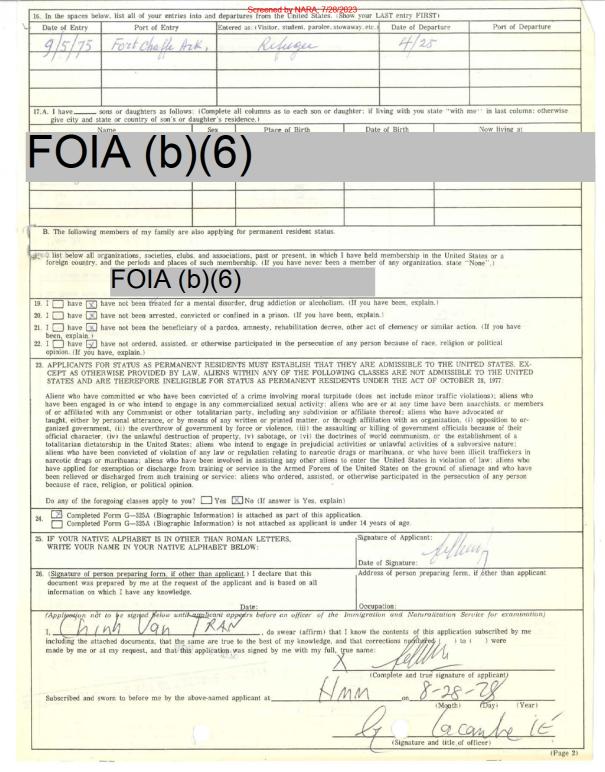 Screened by NARA, 7/26/2023
16. In the spaces below, list all of your entries into and departures from the United States. (Show your LAST entry FIRST)
Date of Entry Port of Entry Entered as: (Visitor, student, parolee, stowaway, etc.) Date of Departure Port of Departure
9/5/75 Fort Chaffe Ark, Refugee 4/25
17.A. I have sons or daughters as follows: (Complete all columns as to each son or daughter; if living with you state "with me" in last column; otherwise
give city and state or country of son's or daughter's residence.)
Name Sex Place of Birth Date of Birth Now living at
FOIA (b)(6)
B. The following members of my family are also applying for permanent resident status.
list below all organizations, societies, clubs, and associations, past or present, in which I have held membership in the United States or a
foreign country, and the periods and places of such membership. (If you have never been a member of any organization, state "None".)
FOIA (b)(6)
19. I have have not been treated for a mental disorder, drug addiction or alcoholism. (If you have been, explain.)
20. I have have not been arrested, convicted or confined in a prison. (If you have been, explain.)
21. I have have not been the beneficiary of a pardon, amnesty, rehabilitation decree, other act of clemency or similar action. (If you have
been, explain.)
22. I have have not ordered, assisted, or otherwise participated in the persecution of any person because of race, religion or political
opinion. (If you have, explain.)
23. APPLICANTS FOR STATUS AS PERMANENT RESIDENTS MUST ESTABLISH THAT THEY ARE ADMISSIBLE TO THE UNITED STATES. EX-
CEPT AS OTHERWISE PROVIDED BY LAW, ALIENS WITHIN ANY OF THE FOLLOWING CLASSES ARE NOT ADMISSIBLE TO THE UNITED
STATES AND ARE THEREFORE INELIGIBLE FOR STATUS AS PERMANENT RESIDENTS UNDER THE ACT OF OCTOBER 28, 1977.
Aliens who have committed or who have been convicted of a crime involving moral turpitude (does not include minor traffic violations); aliens who
have been engaged in or who intend to engage in any commercialized sexual activity; aliens who are or at any time have been anarchists, or members
of or affiliated with any Communist or other totalitarian party, including any subdivision or affiliate thereof; aliens who have advocated or
taught, either by personal utterance, or by means of any written or printed matter, or through affiliation with an organization, (i) opposition to or-
ganized government, (ii) the overthrow of government by force or violence, (iii) the assaulting or killing of government officials because of their
official character, (iv) the unlawful destruction of property, (v) sabotage, or (vi) the doctrines of world communism, or the establishment of a
totalitarian dictatorship in the United States; aliens who intend to engage in prejudicial activities or unlawful activities of a subversive nature;
aliens who have been convicted of violation of any law or regulation relating to narcotic drugs or marihuana, or who have been illicit traffickers in
narcotic drugs or marihuana; aliens who have been involved in assisting any other aliens to enter the United States in violation of law; aliens who
have applied for exemption or discharge from training or service in the Armed Forces of the United States on the ground of alienage and who have
been relieved or discharged from such training or service; aliens who ordered, assisted, or otherwise participated in the persecution of any person
because of race, religion, or political opinion.
Do any of the foregoing classes apply to you? Yes No (If answer is Yes, explain)
24. Completed Form G-325A (Biographic Information) is attached as part of this application.
Completed Form G-325A (Biographic Information) is not attached as applicant is under 14 years of age.
25. IF YOUR NATIVE ALPHABET IS IN OTHER THAN ROMAN LETTERS,
WRITE YOUR NAME IN YOUR NATIVE ALPHABET BELOW:
Signature of Applicant:
Date of Signature:
26. (Signature of person preparing form, if other than applicant.) I declare that this
document was prepared by me at the request of the applicant and is based on all
information on which I have any knowledge.
Date:
Address of person preparing form, if other than applicant
Occupation:
(Application not to be signed below until applicant appears before an officer of the Immigration and Naturalization Service for examination)
I, Chinh Van TRAN, do swear (affirm) that I know the contents of this application subscribed by me
including the attached documents, that the same are true to the best of my knowledge, and that corrections numbered ( ) to ( ) were
made by me or at my request, and that this application was signed by me with my full, true name:
X
(Complete and true signature of applicant)
Subscribed and sworn to before me by the above-named applicant at on 8-28-78
(Month) (Day) (Year)
(Signature and title of officer)
(Page 2)